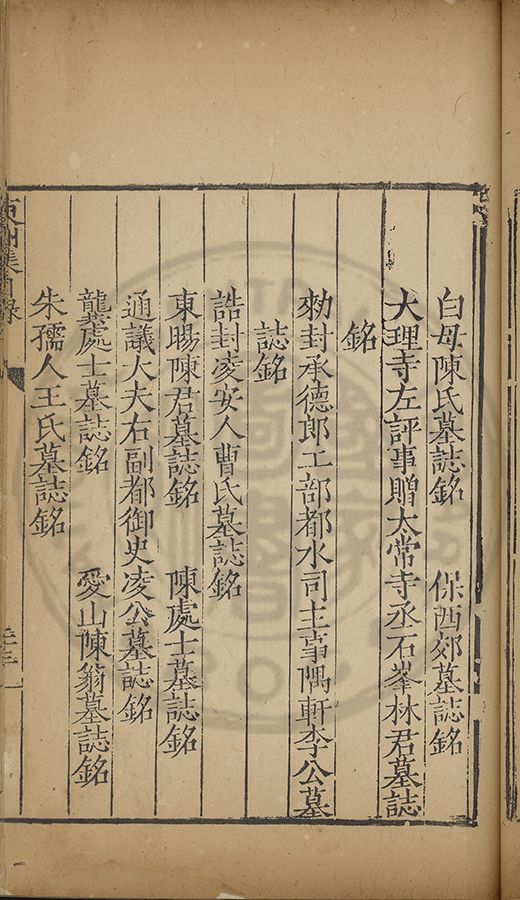 白母陳氏墓誌銘 保西郊墓誌銘
大理寺左評事贈太常寺丞石峯林君墓誌
銘
勑封承德郎工部都水司主事隅軒李公墓
誌銘
誥封凌安人曹氏墓誌銘
東暘陳君墓誌銘 陳處士墓誌銘
通議大夫右副都御史凌公墓誌銘
龔處士墓誌銘 愛山陳翁墓誌銘
朱孺人王氏墓誌銘
集目錄